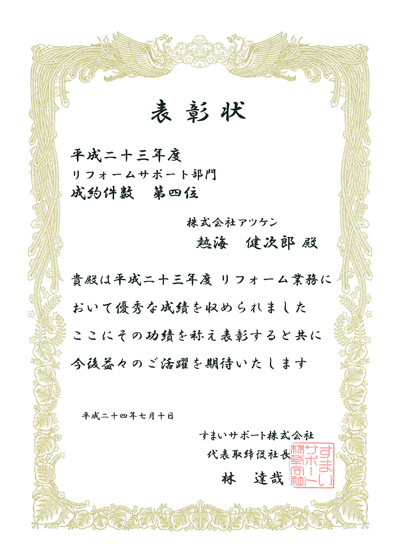 表彰状
平成二十三年度
リフォームサポート部門
成約件数　第四位
株式会社アツケン
熱海　健次郎 殿
貴殿は平成二十三年度 リフォーム業務に
おいて優秀な成績を収められました
ここにその功績を称え表彰すると共に
今後益々のご活躍を期待いたします
平成二十四年七月十日
すまいサポート株式会社
代表取締役社長
林　達哉
すまい
サポート
株式会社